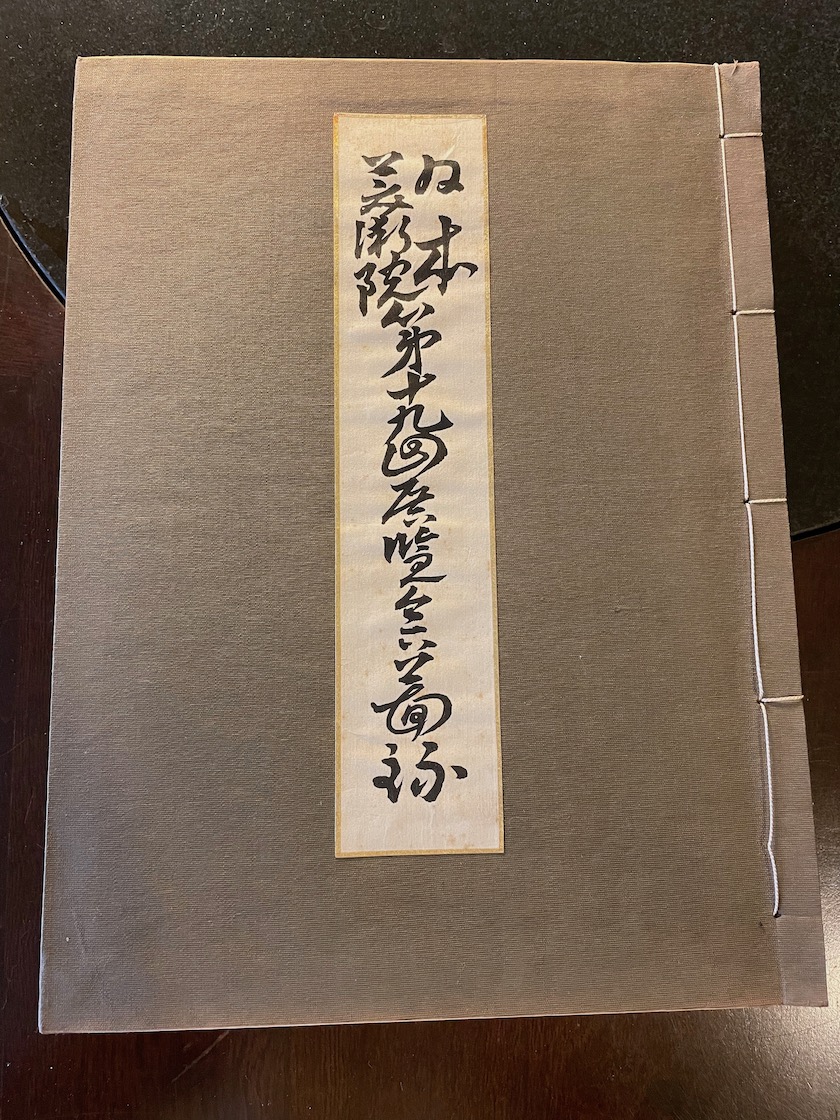 日本
美術院第十九回展覧会画集